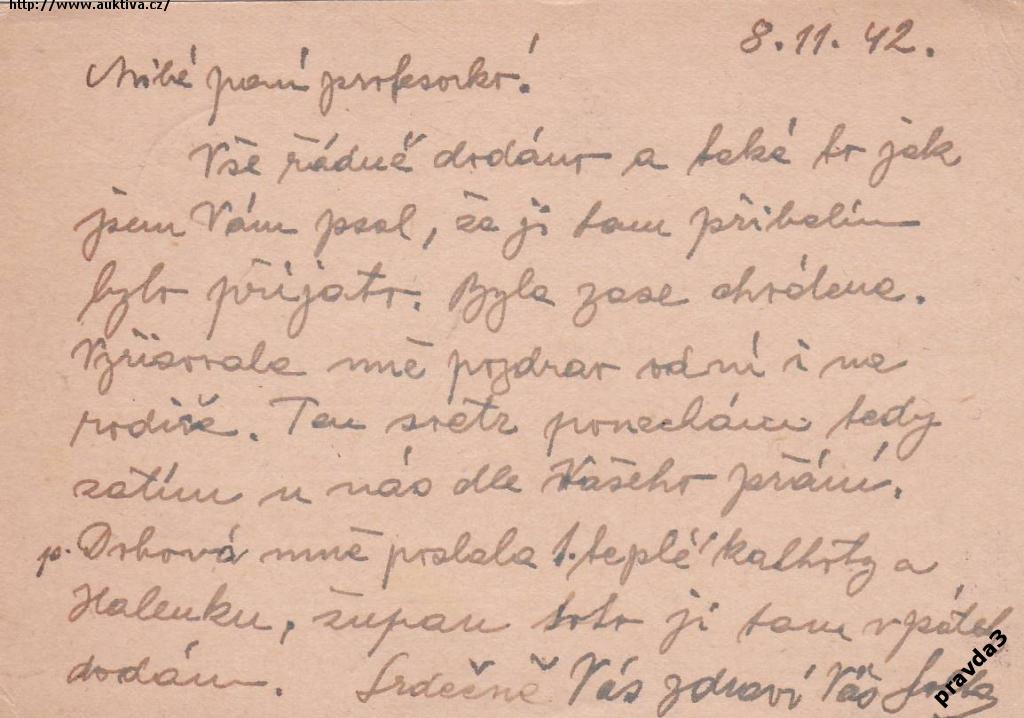 http://www.auktiva.cz/
8.11.42.
Milé paní profesorko!
Vše řádně dodáno a také to jak
jsem Vám psal, že jí tam přibalím
bylo přijato. Byla zase chválena.
Vyřizovala mně pozdrav od ní i na
rodiče. Ten svetr ponechám tedy
zatím u nás dle Vašeho přání.
p. mně poslala 1. teplé kalhoty a
Halenku, župan toto jí tam v pátek
dodám. Srdečně Vás zdraví Váš
pravda3